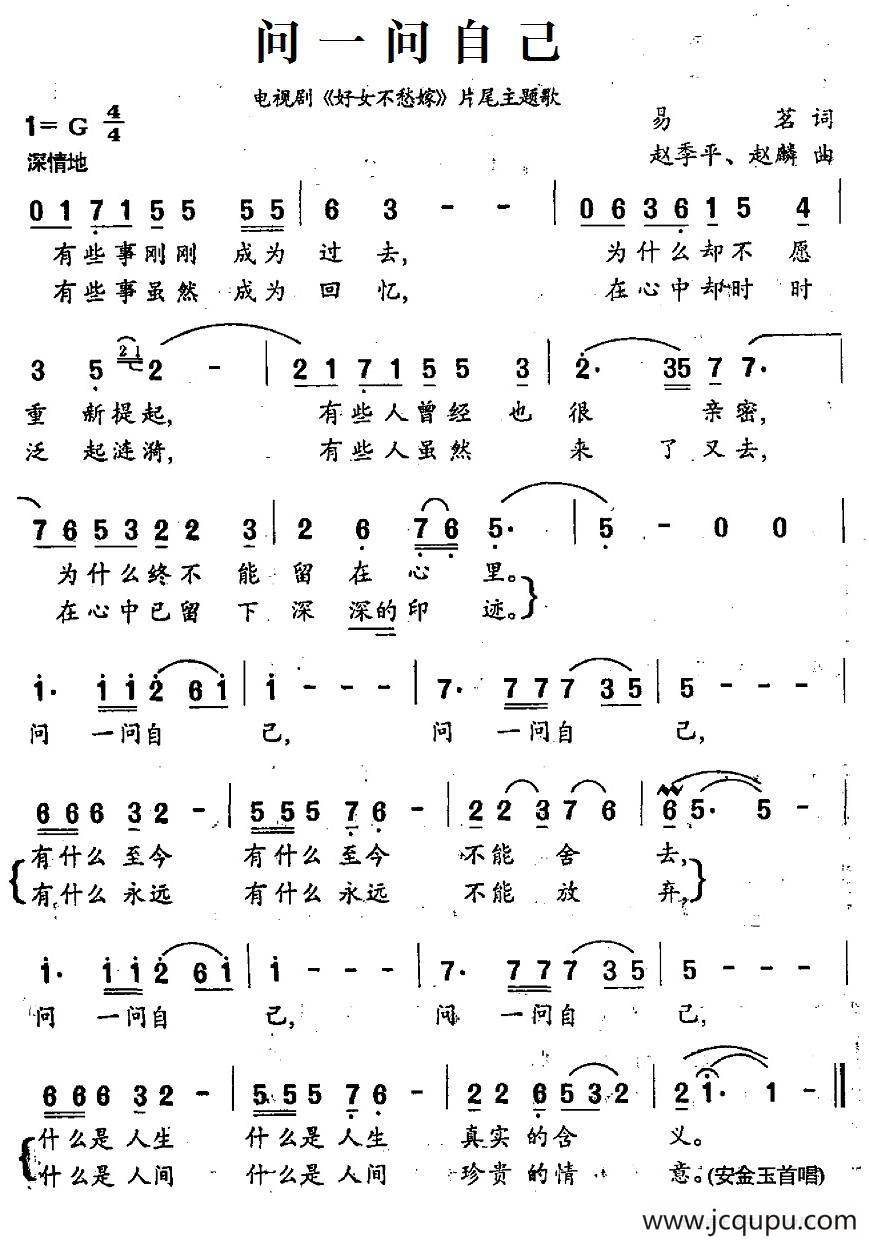 问一问自己
电视剧《好女不愁嫁》片尾主题歌
1=G 4/4
易 茗 词
深情地
赵季平、赵麟 曲
0 1 7 1 5 5 5 5 | 6 3 - - | 0 6 3 6 1 5 4 |
有些事刚刚 成为 过 去, 为什么却不 愿
有些事虽然 成为 回 忆, 在心中却时 时
3 5 2 1 2 - | 2 1 7 1 5 5 5 3 | 2· 3 5 7 7· |
重 新提起, 有些人曾经 也 很 亲密,
泛 起涟漪, 有些人虽然 来 了又去,
7 6 5 3 2 2 3 | 2 6 7 6 5· | 5 - 0 0 |
为什么终不 能 留 在 心 里。
在心中已留 下 深 深的印 迹。
1· 1 1 2 6 1 | 1 - - - | 7· 7 7 7 3 5 | 5 - - - |
问 一问自 己, 问 一问自 己,
6 6 6 3 2 - | 5 5 5 7 6 - | 2 2 3 7 6 | 6 5· 5 - |
有什么 至今 有什么 至今 不能 舍 去,
有什么 永远 有什么 永远 不能 放 弃,
1· 1 1 2 6 1 | 1 - - - | 7· 7 7 7 3 5 | 5 - - - |
问 一问自 己, 问 一问自 己,
6 6 6 3 2 - | 5 5 5 7 6 - | 2 2 6 5 3 2 | 2 1· 1 - ‖
什么是 人生 什么是 人生 真实 的含 义。
什么是 人间 什么是 人间 珍贵 的情 意。(安金玉首唱)
www.jcqupu.com